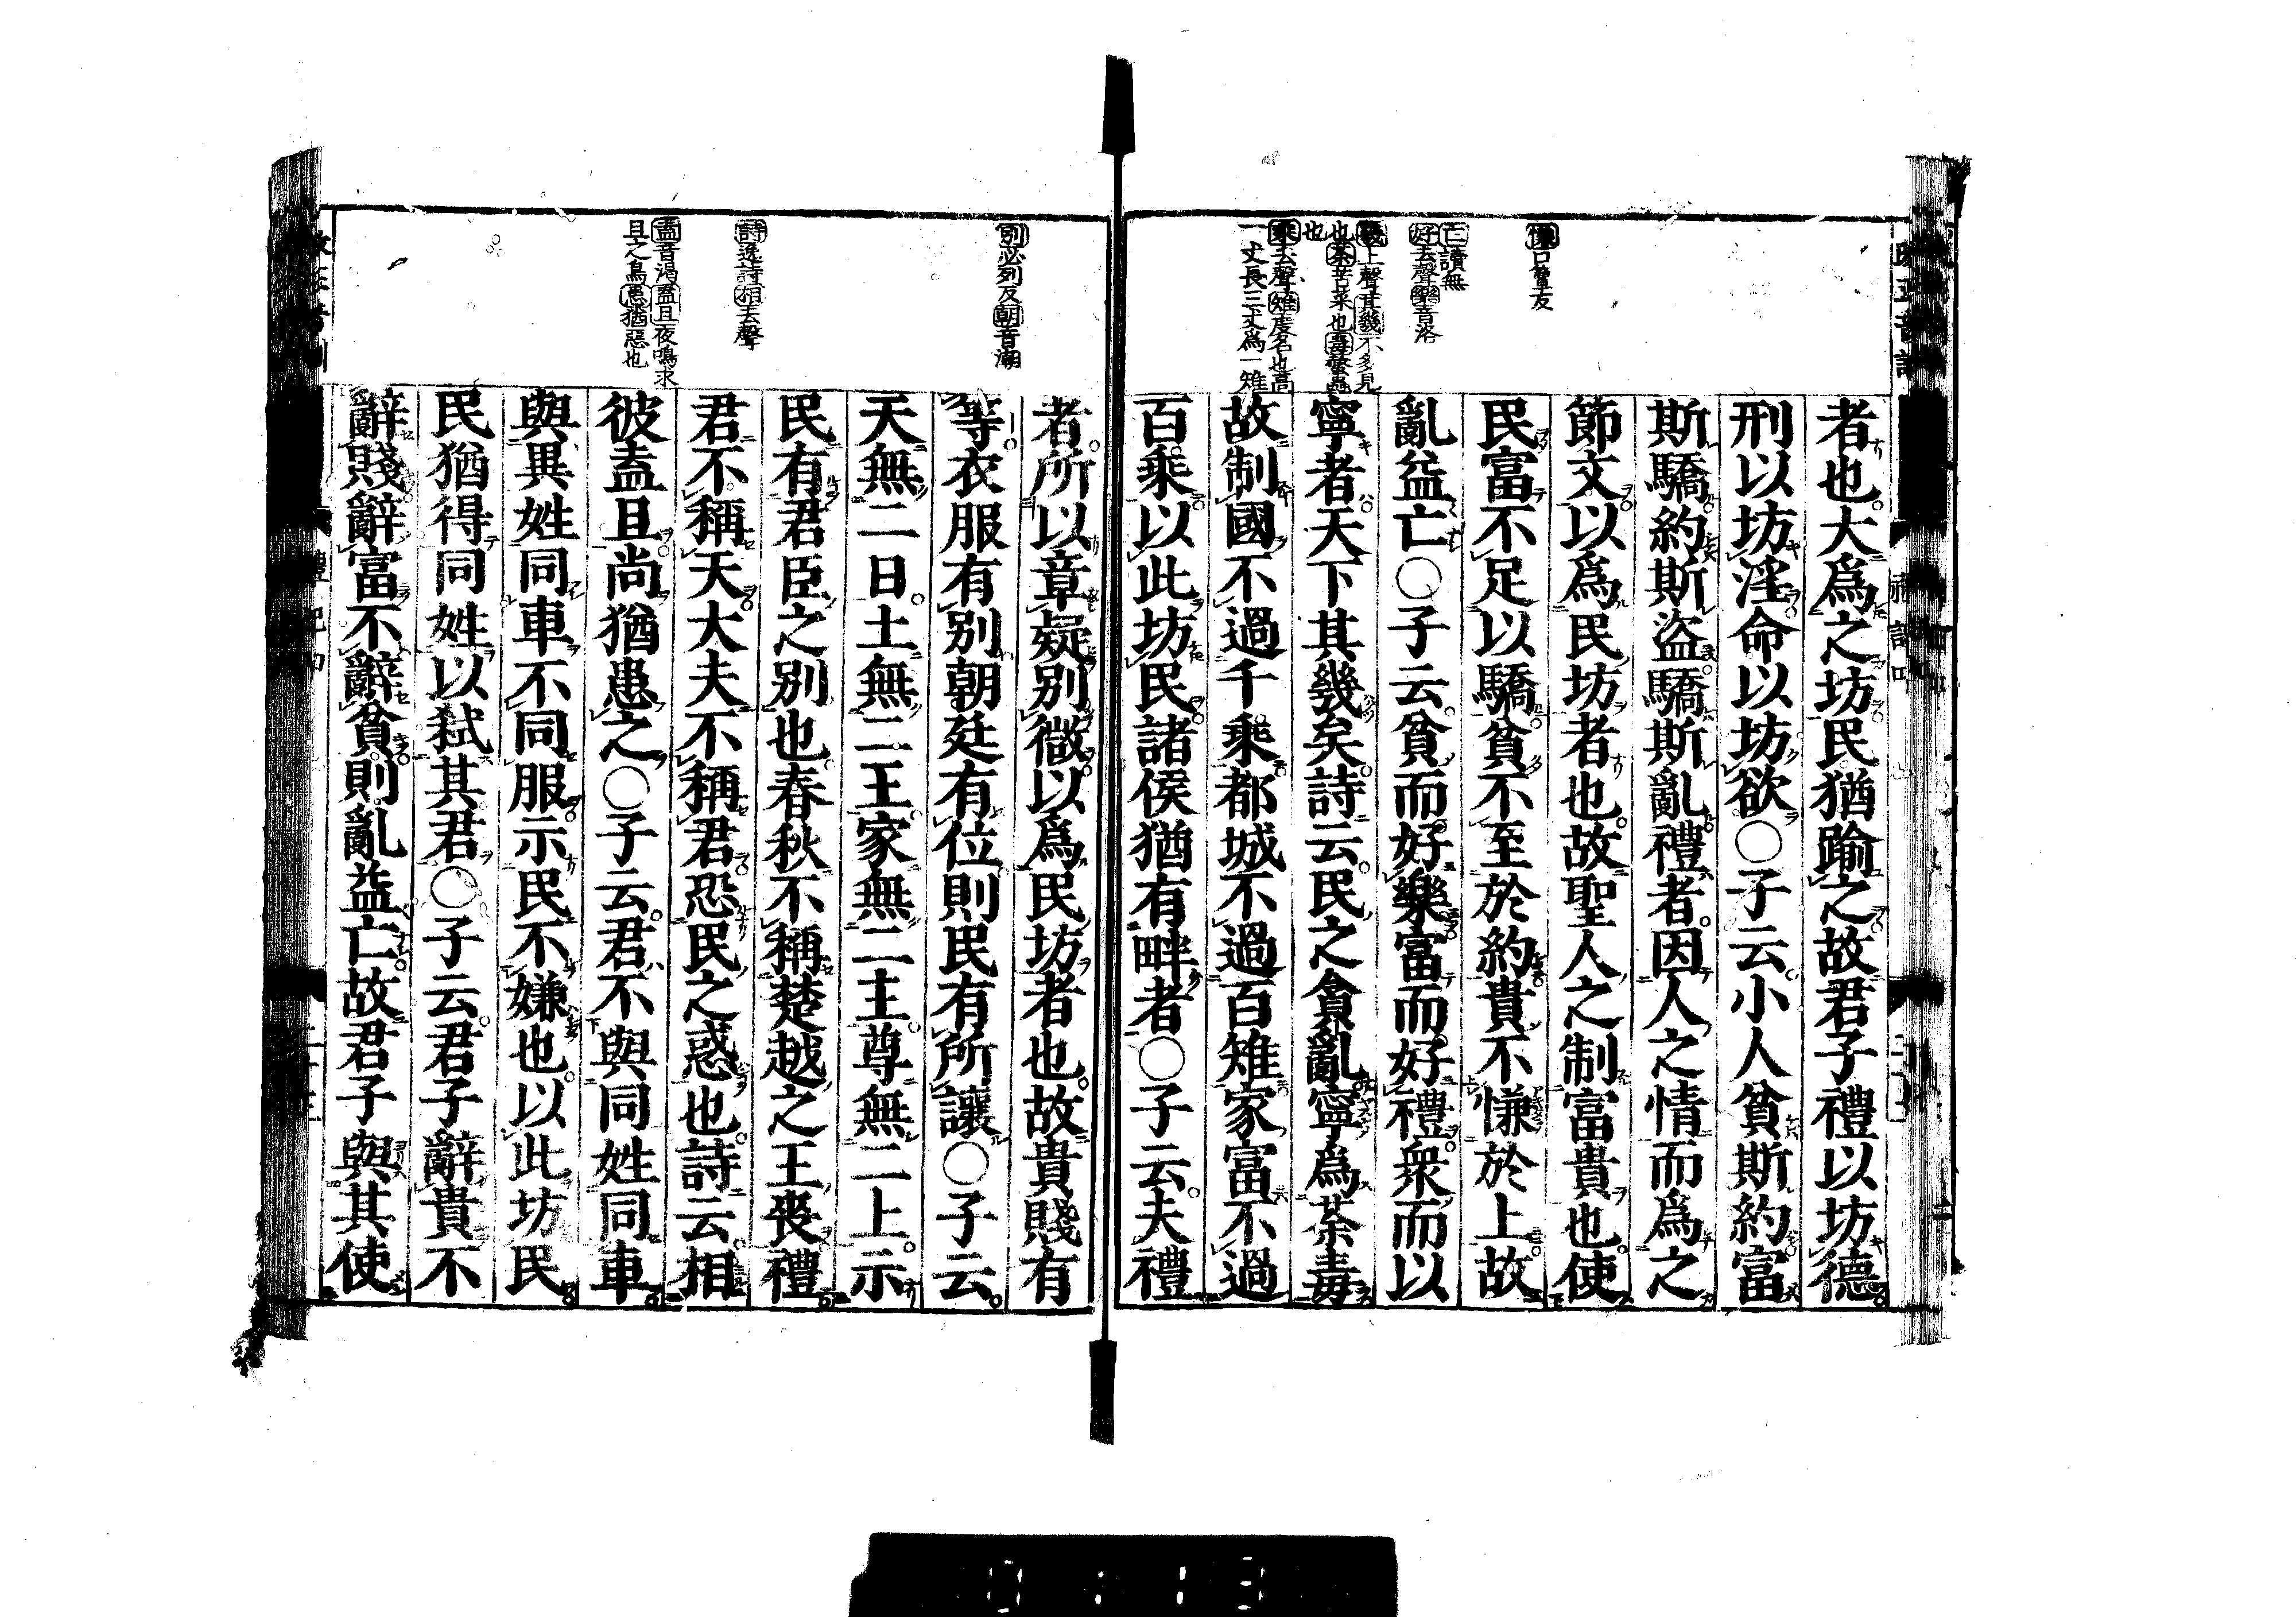 慊口簟友
亡讀無
好去聲樂音洛
幾上聲其幾不多見
也荼苦菜也毒螫蟲
也
乘去聲雉度名也高
一丈長三丈爲一雉
者也大爲之坊民猶踰之故君子禮以坊德
刑以坊淫命以坊欲○子云小人貧斯約富
斯驕約斯盜驕斯亂禮者因人之情而爲之
節文以爲民坊者也故聖人之制富貴也使
民富不足以驕貧不至於約貴不慊於上故
亂益亡○子云貧而好樂富而好禮衆而以
寧者天下其幾矣詩云民之貪亂寧爲荼毒
故制國不過千乘都城不過百雉家富不過
百乘以此坊民諸侯猶有畔者○子云夫禮
別必列反朝音潮
詩逸詩相去聲
盍音渴盍旦夜鳴求
旦之鳥患猶惡也
者所以章疑別微以爲民坊者也故貴賤有
等衣服有別朝廷有位則民有所讓○子云
天無二日土無二王家無二主尊無二上示
民有君臣之別也春秋不稱楚越之王喪禮
君不稱天大夫不稱君恐民之惑也詩云相
彼盍旦尚猶患之○子云君不與同姓同車
與異姓同車不同服示民不嫌也以此坊民
民猶得同姓以弑其君○子云君子辭貴不
辭賤辭富不辭貧則亂益亡故君子與其使